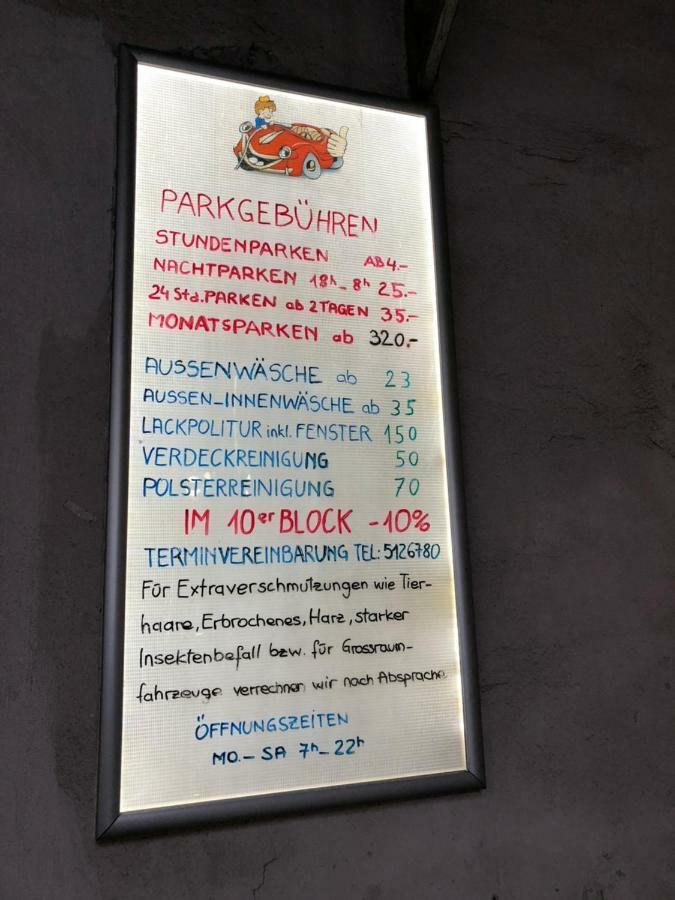 PARKGEBÜHREN
STUNDENPARKEN AB 4.-
NACHTPARKEN 18h - 8h 25.-
24 Std. PARKEN ab 2 TAGEN 35.-
MONATSPARKEN ab 320.-
AUSSENWÄSCHE ab 23
AUSSEN-INNENWÄSCHE ab 35
LACKPOLITUR inkl. FENSTER 150
VERDECKREINIGUNG 50
POLSTERREINIGUNG 70
IM 10er BLOCK -10%
TERMINVEREINBARUNG TEL: 5126780
Für Extraverschmutzungen wie Tier-
haare, Erbrochenes, Harz, starker
Insektenbefall bzw. für Grossraum-
fahrzeuge verrechnen wir nach Absprache
ÖFFNUNGSZEITEN
MO. - SA 7h - 22h